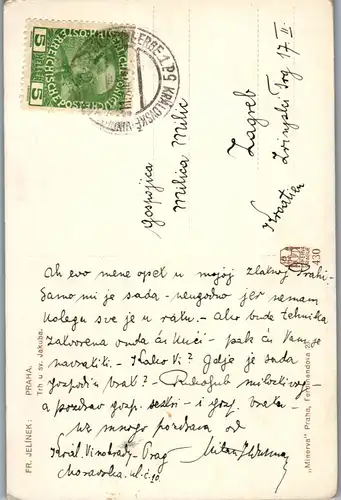 5 5
KRÁLOVSKÉ VIN
Gospojica
Milica Milić
Zagreb
Zrinjski Trg 17 II
Kroatien
430
"Minerva" Praha, Ferdinandova
FR. JELÍNEK: PRAHA.
Trh u sv. Jakuba.
Ah evo mene opet u mojoj zlatnoj Prahi-
Samo mi je sada - neugodno jer nemam
kolega sve je u ratu. - Ako bude tehnika
zatvorena onda ću kući - pak ću Vam se
navratiti. - Kako Vi? Gdje je sada
gospodin brat? -
a pozdrav gosp. sestri - i gosp. bratu -
uz mnogo pozdrava od
Král. Vinohrady - Prag Milan
Moravska ul. č. 10.